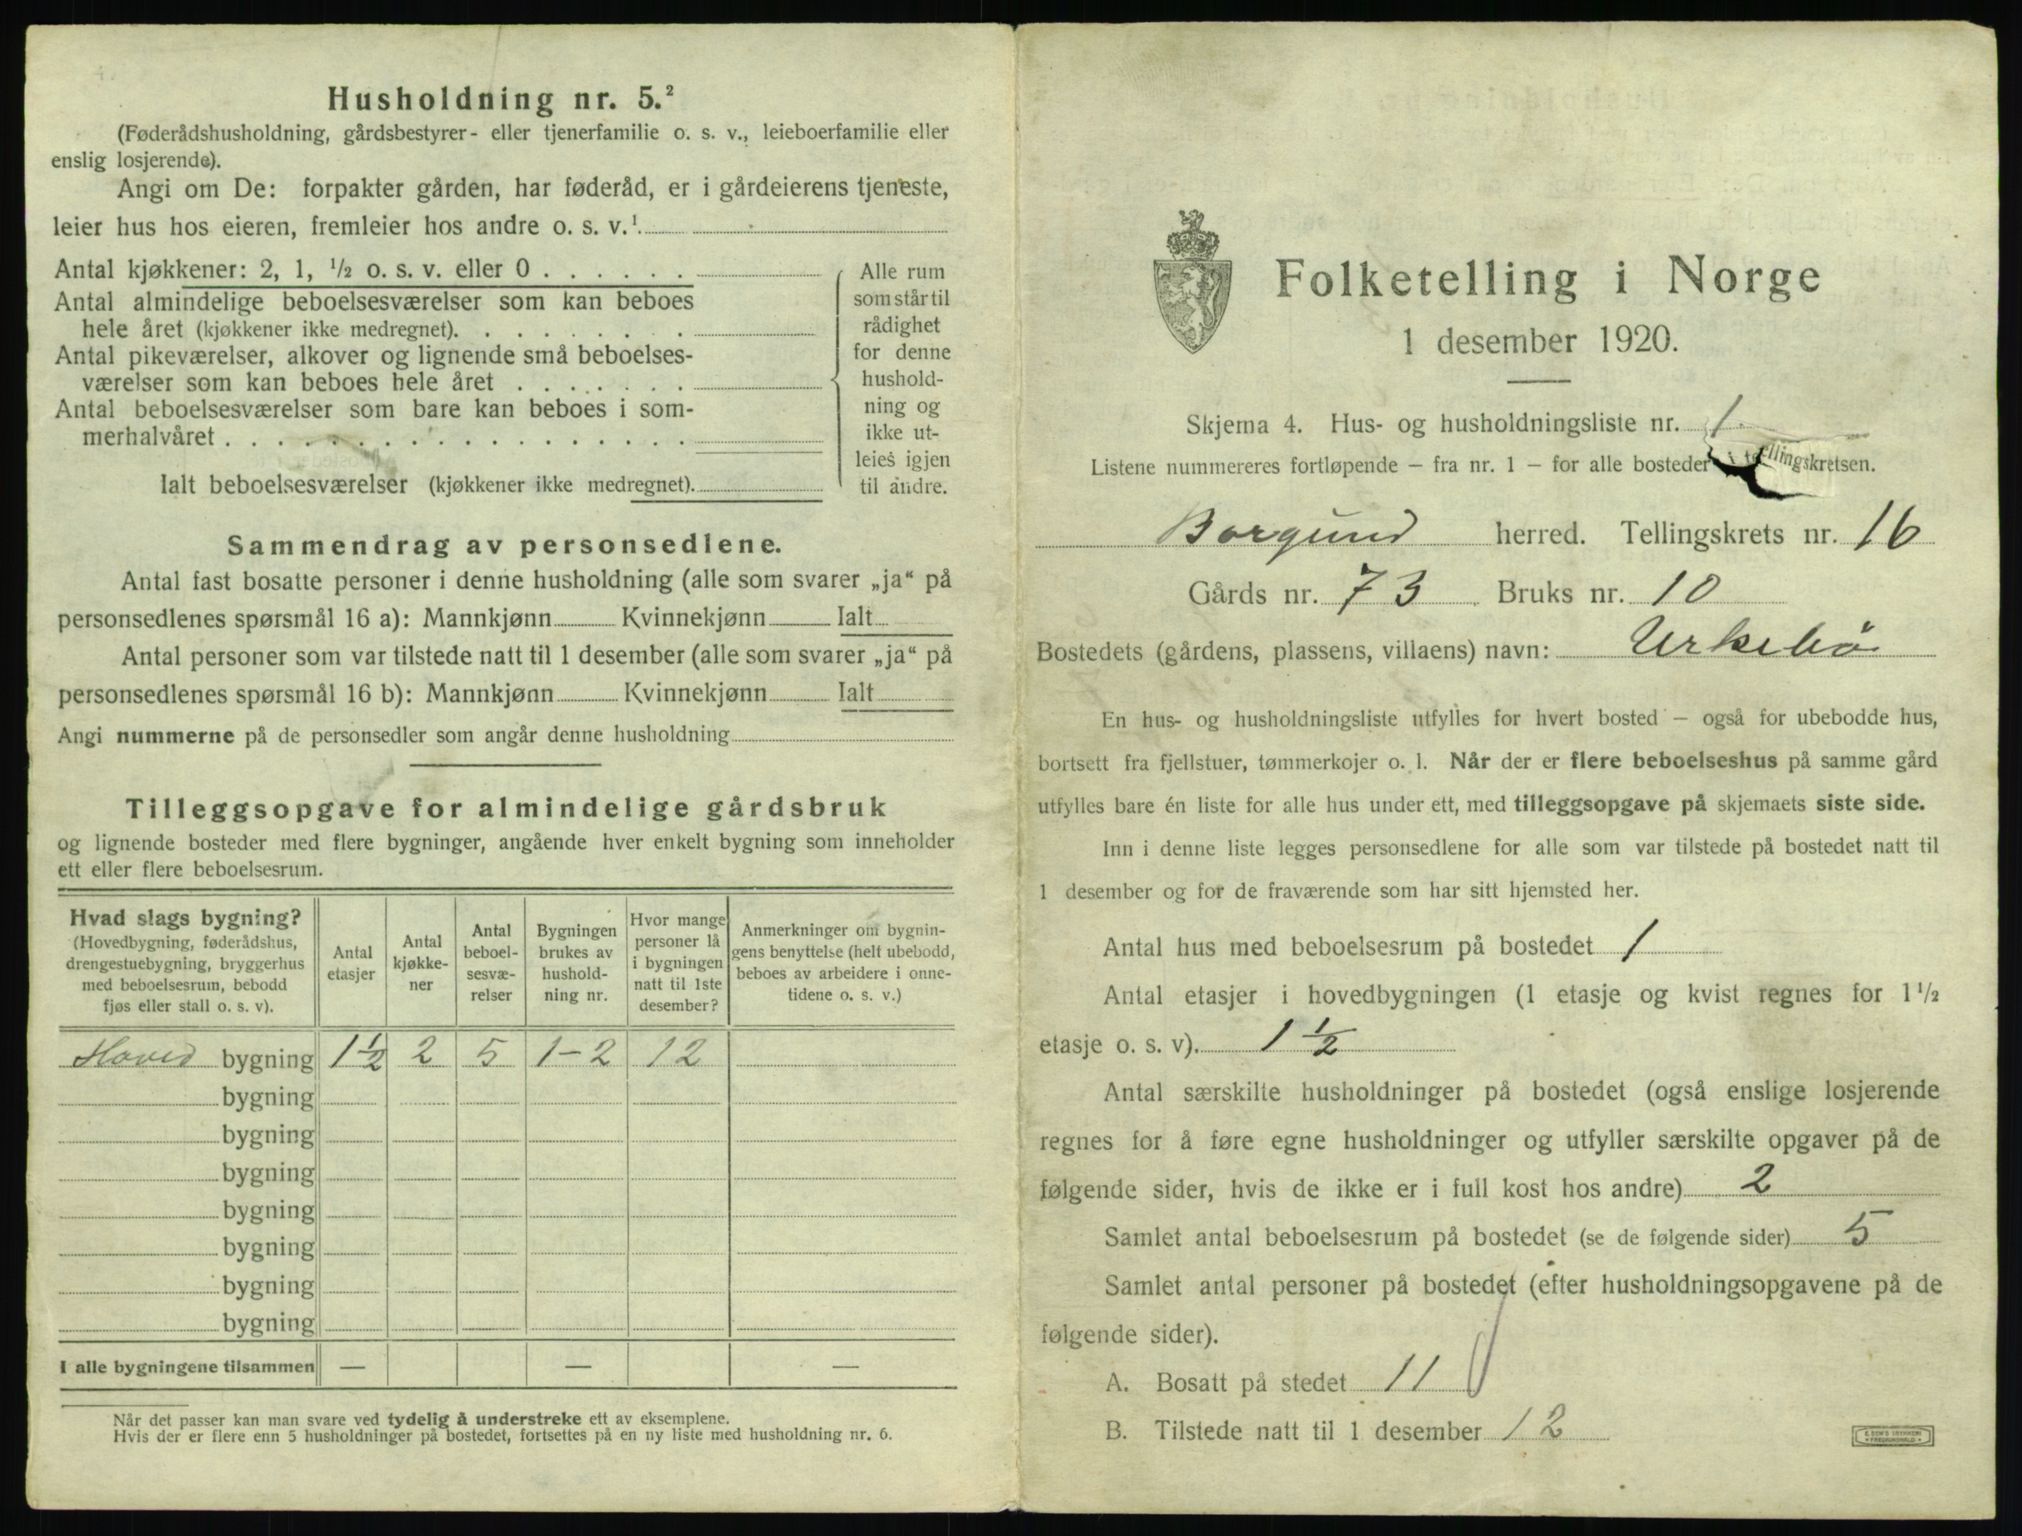 Husholdning nr. 5.²
(Føderådshusholdning, gårdsbestyrer- eller tjenerfamilie o. s. v., leieboerfamilie eller
enslig losjerende).
Angi om De: forpakter gården, har føderåd, er i gårdeierens tjeneste,
leier hus hos eieren, fremleier hos andre o. s. v.¹
Antal kjøkkener: 2, 1, ½ o. s. v. eller 0 . . . . . .
Antal almindelige beboelsesværelser som kan beboes
hele året (kjøkkener ikke medregnet). . . . . . . .
Antal pikeværelser, alkover og lignende små beboelses-
værelser som kan beboes hele året . . . . . . .
Antal beboelsesværelser som bare kan beboes i som-
merhalvåret . . . . . . . . . . . . . . . . . .
Ialt beboelsesværelser (kjøkkener ikke medregnet).
Alle rum
som står til
rådighet
for denne
hushold-
ning og
ikke ut-
leies igjen
til andre.
Sammendrag av personsedlene.
Antal fast bosatte personer i denne husholdning (alle som svarer „ja“ på
personsedlenes spørsmål 16 a): Mannkjønn Kvinnekjønn Ialt
Antal personer som var tilstede natt til 1 desember (alle som svarer „ja“ på
personsedlenes spørsmål 16 b): Mannkjønn Kvinnekjønn Ialt
Angi nummerne på de personsedler som angår denne husholdning
Tilleggsopgave for almindelige gårdsbruk
og lignende bosteder med flere bygninger, angående hver enkelt bygning som inneholder
ett eller flere beboelsesrum.
Hvad slags bygning?
(Hovedbygning, føderådshus,
drengestuebygning, bryggerhus
med beboelsesrum, bebodd
fjøs eller stall o. s. v).
Antal
etasjer
Antal
kjøkke-
ner
Antal
beboel-
sesvæ-
relser
Bygningen
brukes av
hushold-
ning nr.
Hvor mange
personer lå
i bygningen
natt til 1ste
desember?
Anmerkninger om bygnin-
gens benyttelse (helt ubebodd,
beboes av arbeidere i onne-
tidene o. s. v.)
Hoved bygning 1½ 2 5 1-2 12
bygning
bygning
bygning
bygning
bygning
bygning
bygning
I alle bygningene tilsammen — — —
Når det passer kan man svare ved tydelig å understreke ett av eksemplene.
Hvis der er flere enn 5 husholdninger på bostedet, fortsettes på en ny liste med husholdning nr. 6.
Folketelling i Norge
1 desember 1920.
Skjema 4. Hus- og husholdningsliste nr. 1
Listene nummereres fortløpende – fra nr. 1 – for alle bosteder i tellingskretsen.
Borgund herred. Tellingskrets nr. 16
Gårds nr. 73 Bruks nr. 10
Bostedets (gårdens, plassens, villaens) navn: Urkebø
En hus- og husholdningsliste utfylles for hvert bosted – også for ubebodde hus,
bortsett fra fjellstuer, tømmerkojer o. l. Når der er flere beboelseshus på samme gård
utfylles bare én liste for alle hus under ett, med tilleggsopgave på skjemaets siste side.
Inn i denne liste legges personsedlene for alle som var tilstede på bostedet natt til
1 desember og for de fraværende som har sitt hjemsted her.
Antal hus med beboelsesrum på bostedet 1
Antal etasjer i hovedbygningen (1 etasje og kvist regnes for 1½
etasje o. s. v). 1½
Antal særskilte husholdninger på bostedet (også enslige losjerende
regnes for å føre egne husholdninger og utfyller særskilte opgaver på de
følgende sider, hvis de ikke er i full kost hos andre) 2
Samlet antal beboelsesrum på bostedet (se de følgende sider) 5
Samlet antal personer på bostedet (efter husholdningsopgavene på de
følgende sider).
A. Bosatt på stedet 11
B. Tilstede natt til 1 desember 12